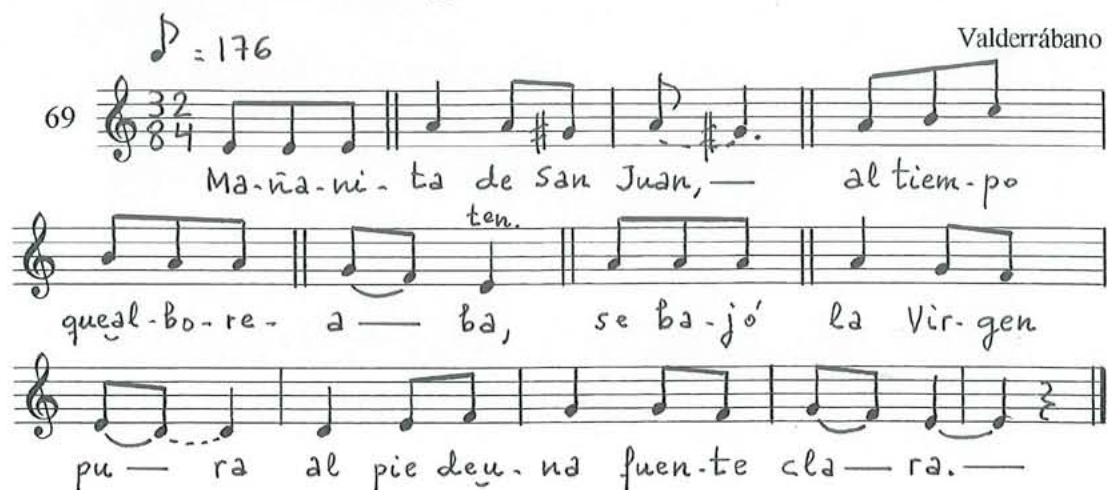 ♪ = 176
Valderrábano
69
3 2
8 4
Ma-ña-ni-ta de San Juan,— al tiem-po
ten.
queal-bo-re-a—ba, se ba-jó la Vir-gen
pu—ra al pie deu-na fuen-te cla—ra.—